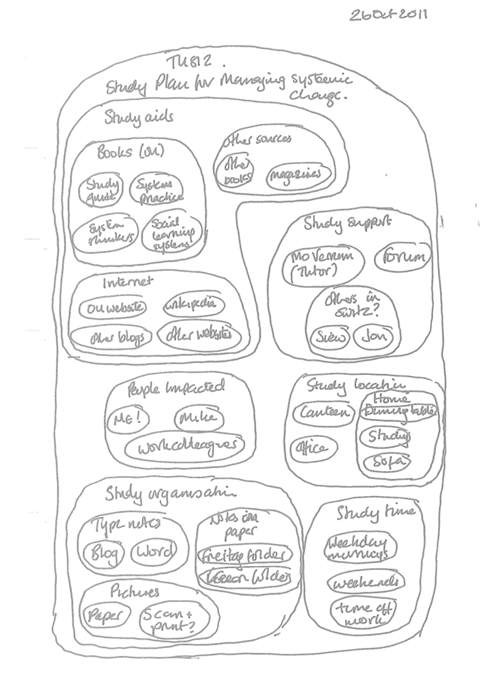 26 Oct 2011
TU812.
Study Plan for Managing systemic
change.
Study aids
Books (OU)
Study
guide
Systems
Practice
System
thinkers
Social
learning
systems
Other sources
Other
books
magazines
Internet
OU website
wikipedia
Other blogs
Other websites
Study support
Mo Vernon
(Tutor)
forum
Others in
?
Jon
People Impacted
ME!
Mike
Work colleagues
Study location
Canteen
Office
Home
Dining table
Study
Sofa
Study organisation
Type notes
Blog
Word
Notes on
paper
folder
folders
Pictures
Paper
Scan +
print?
Study time
Weekday
mornings
weekends
time off
work